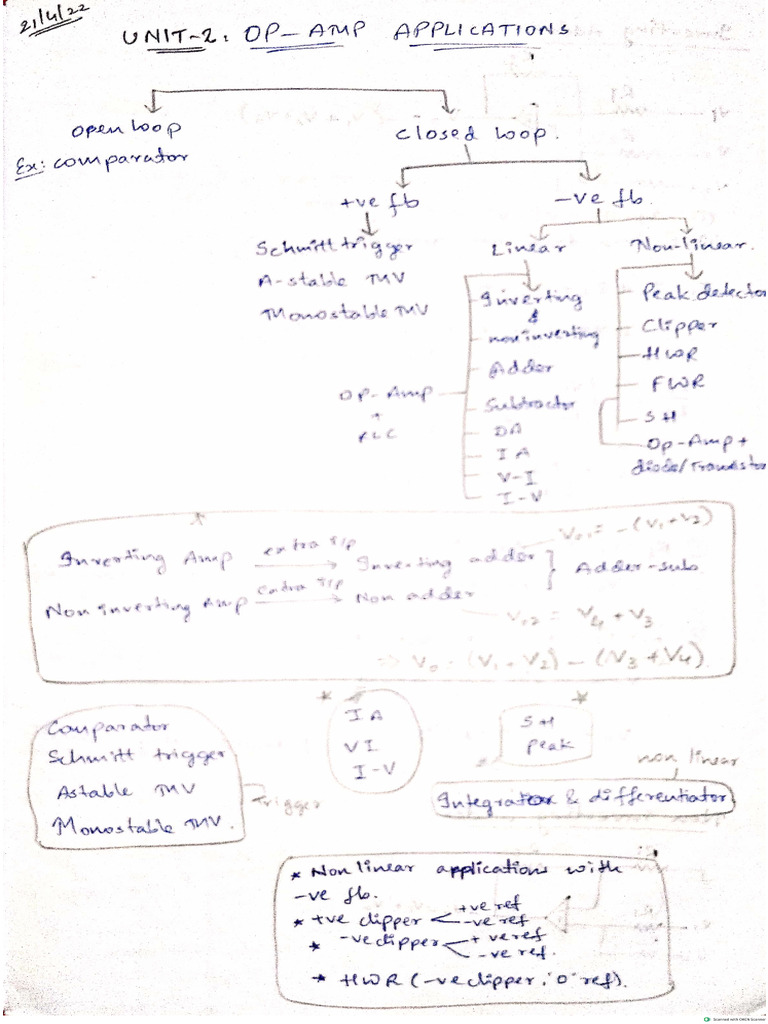 21/4/22
UNIT-2: OP-AMP APPLICATIONS
open loop
closed loop.
Ex: comparator
+ve fb
-ve fb.
Schmitt trigger
A-stable MV
Monostable MV
Linear
Non-linear.
Inverting
&
noninverting
Adder
Subtractor
DA
IA
V-I
I-V
OP-Amp
+
RLC
Peak detector
Clipper
HWR
FWR
SH
Op-Amp +
diode/Transistor
Inverting Amp extra I/p Inverting adder
Non inverting Amp extra I/p Non adder
Adder-sub
Vo1 = -(V1+V2)
Vo2 = V4 + V3
⇒ Vo = (V1 - V2) - (V3 + V4)
Comparator
Schmitt trigger
Astable MV
Monostable MV.
Trigger
* IA
VI
I-V
*
SH
Peak
non linear
Integrator & differentiator
* Non linear applications with
-ve fb.
* +ve clipper +ve ref
-ve ref
* -ve clipper + ve ref
-ve ref.
* HWR (-ve clipper, '0' ref).
Scanned with OKEN Scanner